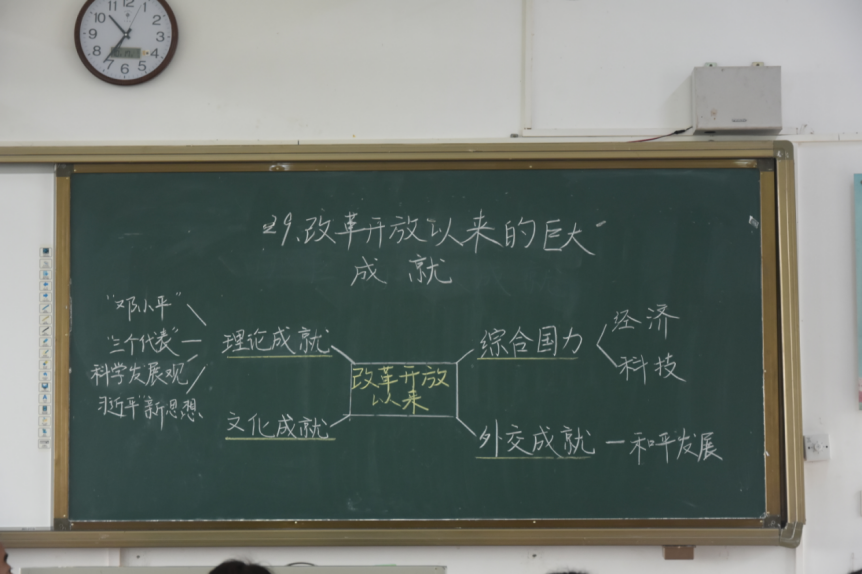 12
1
2
3
4
5
6
7
8
9
10
11
"29.改革开放以来的巨大"
成就
"邓小平"
"三个代表"
科学发展观
习近平"新思想
理论成就
文化成就
改革开放
以来
综合国力
经济
科技
外交成就
和平发展